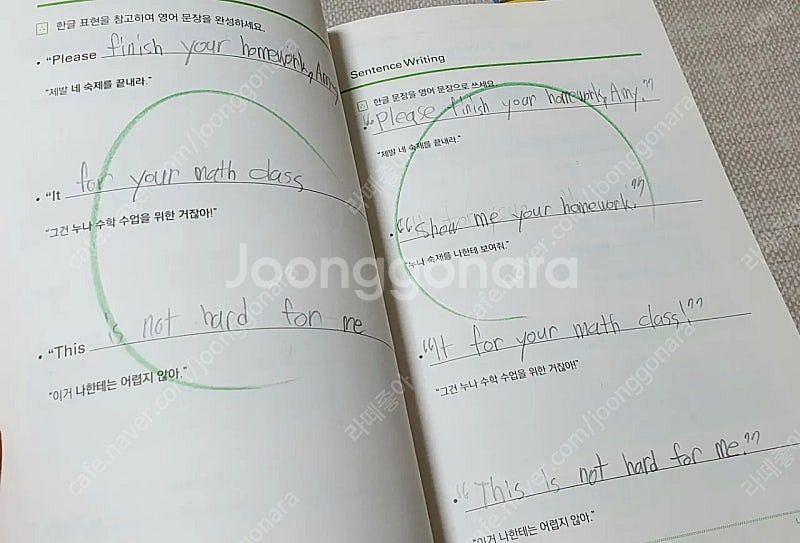 한글 표현을 참고하여 영어 문장을 완성하세요.
• "Please finish your homework, Amy
"제발 네 숙제를 끝내라."
• "It for your math class
"그건 누나 수학 수업을 위한 거잖아!"
• "This is not hard for me
"이거 나한테는 어렵지 않아."
Sentence Writing
한글 문장을 영어 문장으로 쓰세요.
• "Please finish your homework, Amy."
"제발 네 숙제를 끝내라."
• "Show me your homework."
"누나 숙제를 나한테 보여줘."
• "It for your math class!"
"그건 누나 수학 수업을 위한 거잖아!"
• "This is not hard for me."
"이거 나한테는 어렵지 않아."
Joonggonara
cafe.naver.com/joonggonara
라떼좋아